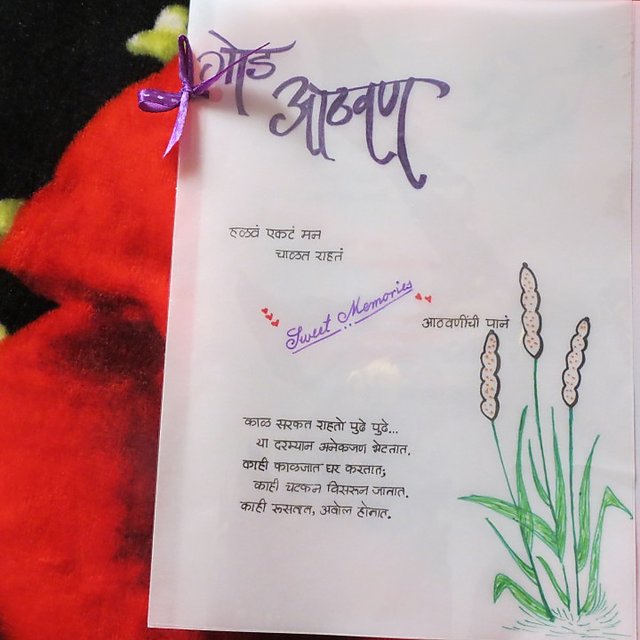 गोड
आठवण
हळवं एकटं मन
चाळत राहतं
Sweet Memories
आठवणींची पानं
काळ सरकत राहतो पुढे पुढे...
या दरम्यान अनेकजण भेटतात.
काही काळजात घर करतात;
काही चटकन विसरून जातात.
काही रूसतात, अबोल होतात.